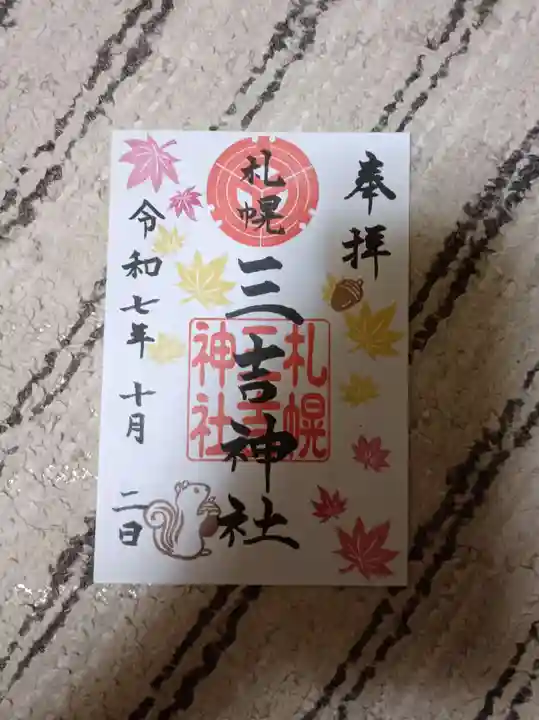 奉拝
札幌
三吉神社
札幌
三吉
神社
令和七年十月二日